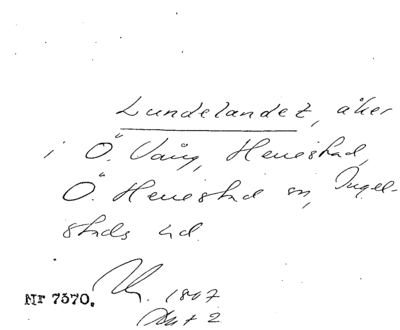 Lundelandet, åker
i Ö. Vång, Herrestad,
Ö. Herrestad sn, Ingel-
stads hd.
Nr 7570. 1807
Akt 2